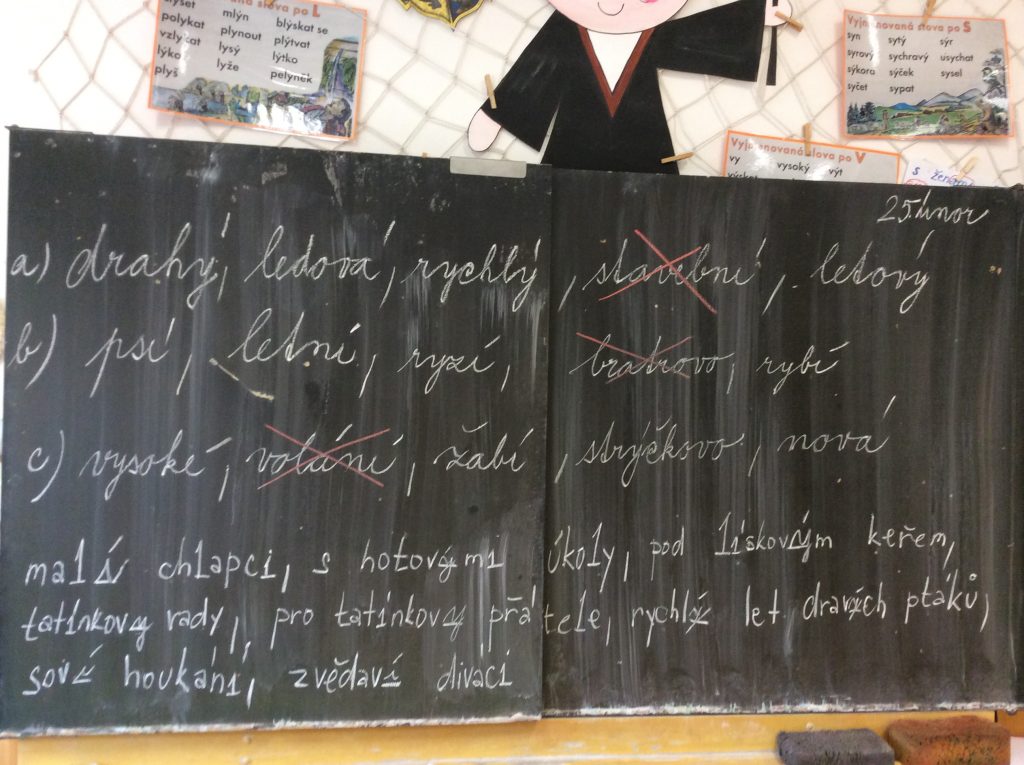 slova po L
slyšet mlýn blýskat se
polykat plynout plýtvat
vzlykat lysý lýtko
lýko lyže pelyněk
plyš
Vyjmenovaná slova po S
syn sytý sýr
syrový sychravý usychat
sýkora sýček sysel
syčet sypat
Vyjmenovaná slova po V
vy vysoký výt
25. únor
a) drahý, ledová, rychlý, stavební, letový
b) psí, letní, ryzí, bratrovo, rybí
c) vysoké, volání, žabí, strýčkovo, nová
malí chlapci, s hotovými úkoly, pod lískovým keřem,
tatínkovy rady, pro tatínkovy přátele, rychlý let dravých ptáků,
soví houkání, zvědaví diváci